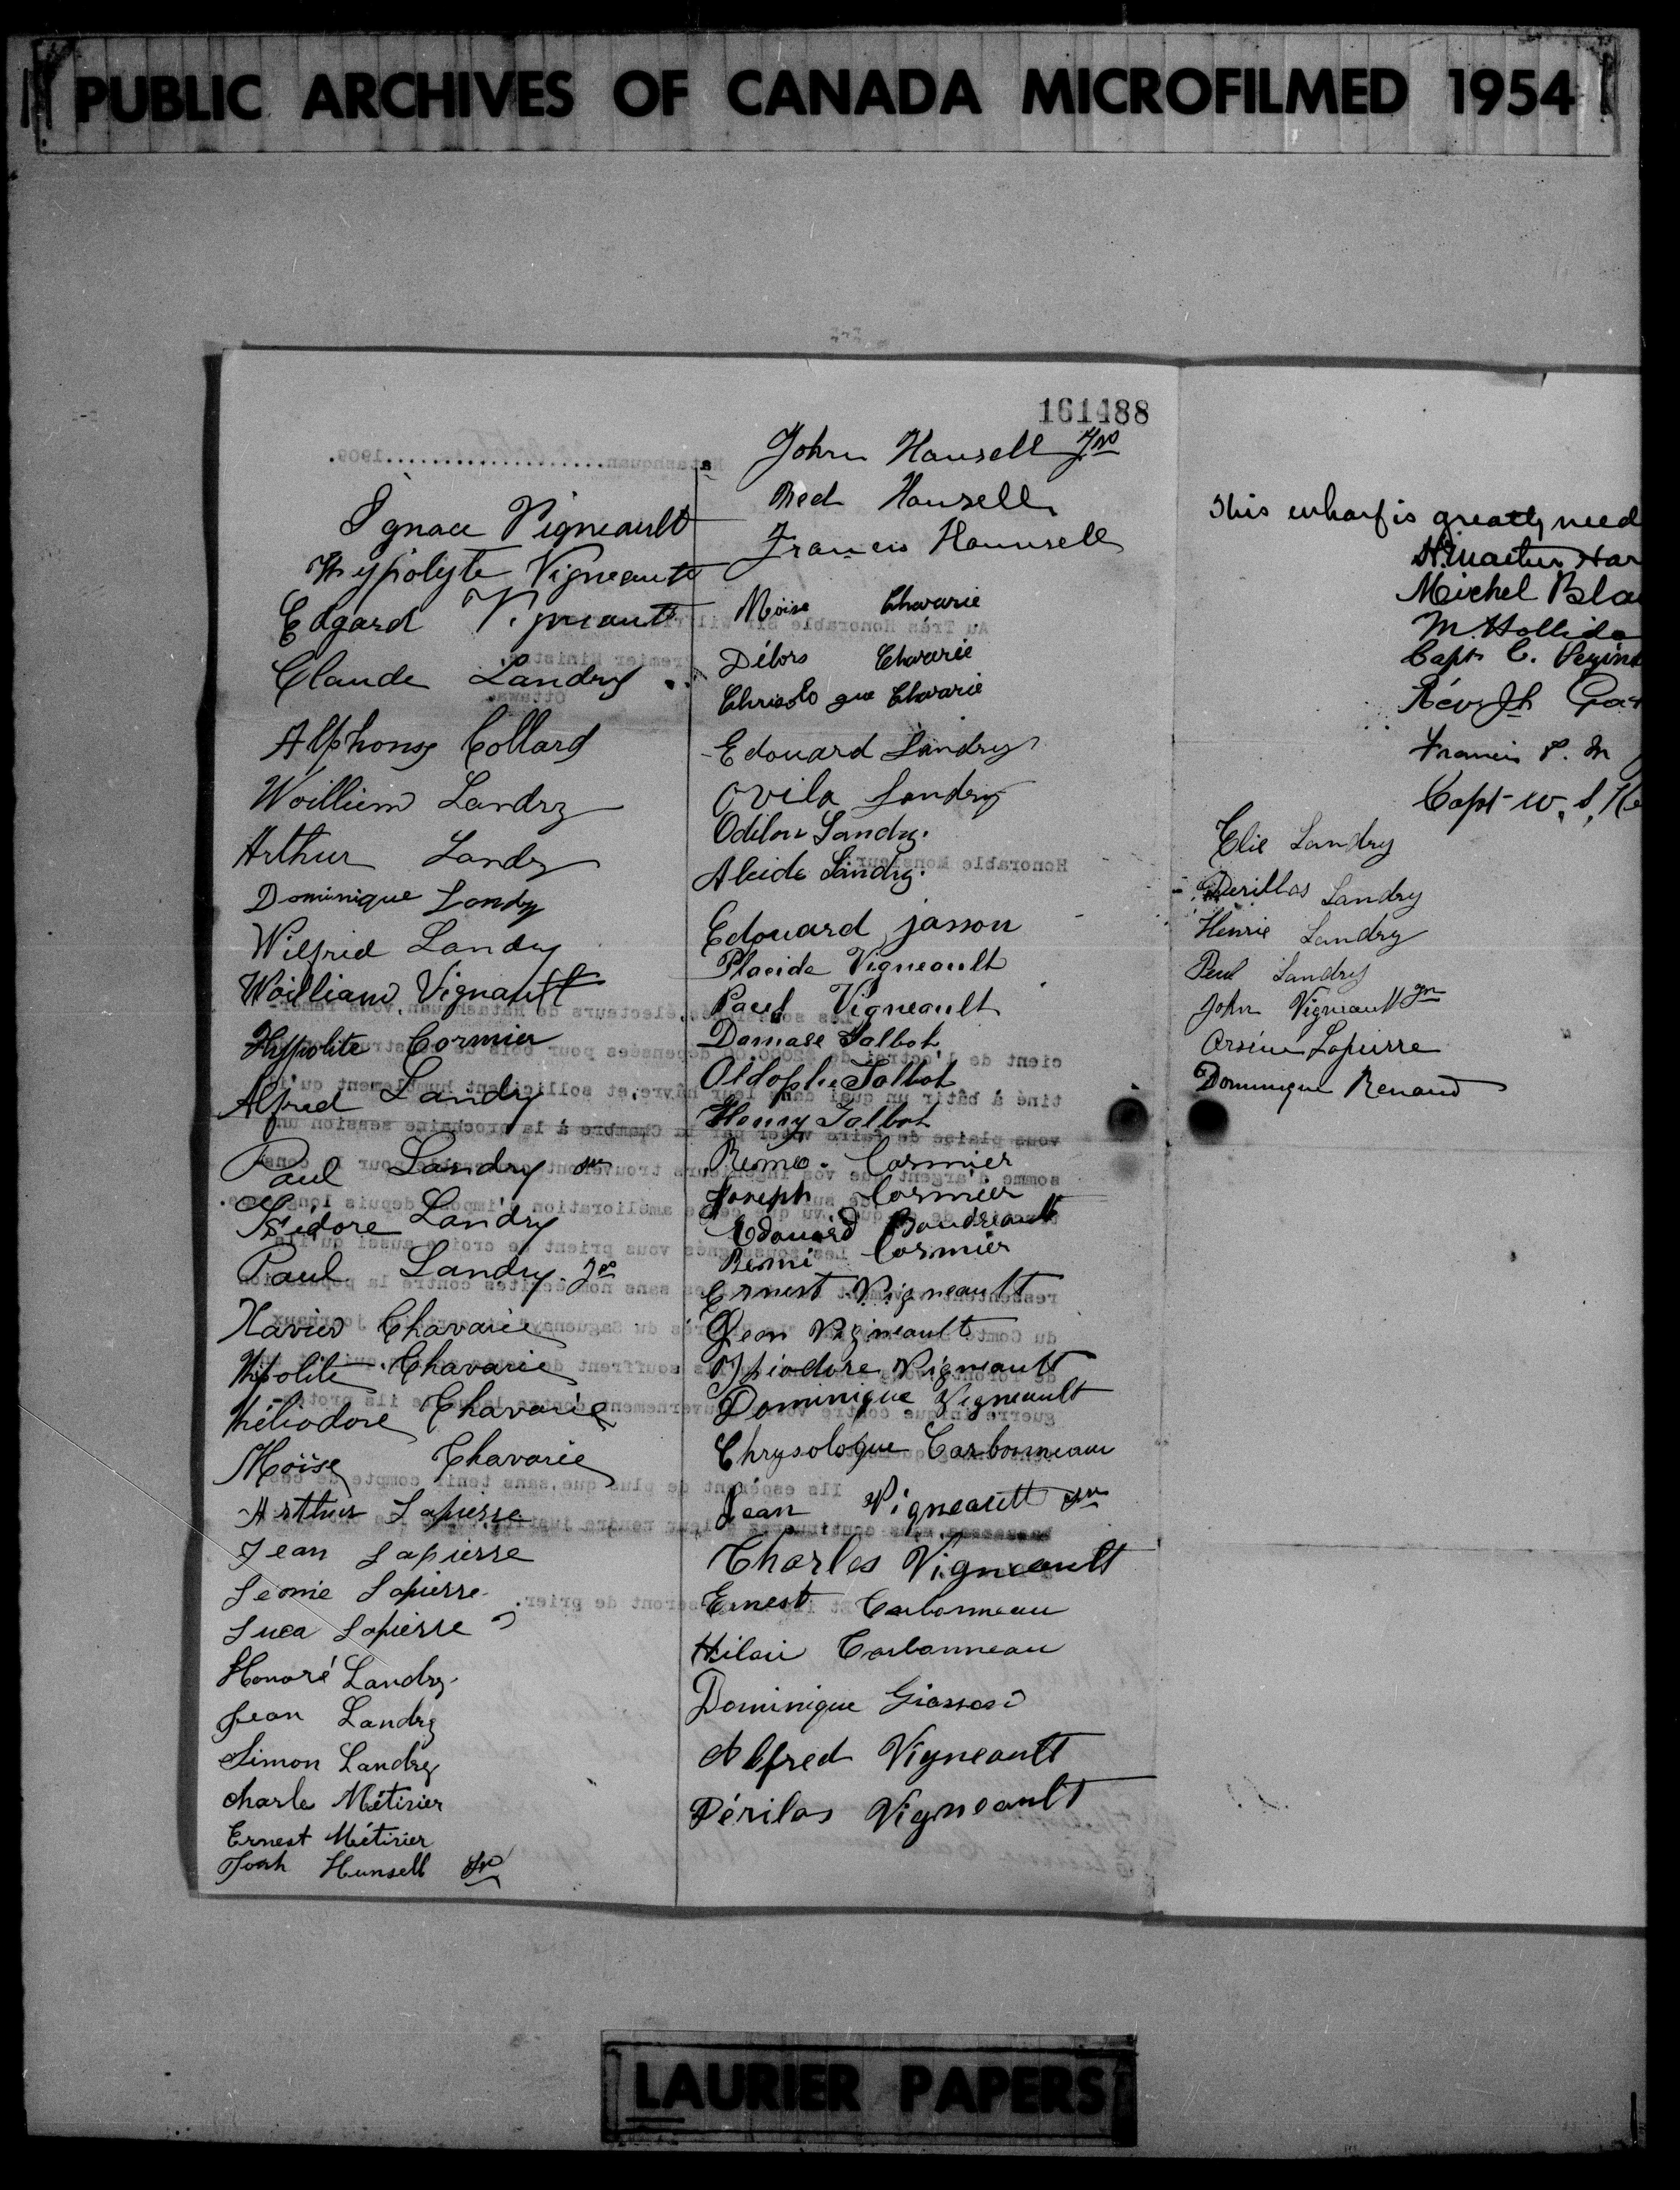 PUBLIC ARCHIVES OF CANADA MICROFILMED 1954
161488
Ignace Vigneault
Hypolyte Vigneault
Edgard Vigneault
Claude Landry
Alphonse Collard
Woilliem Landry
Arthur Landry
Dominique Landry
Wilfrid Landry
Woilliam Vignault
Hyppolite Cormier
Alfred Landry
Paul Landry sr
Isidore Landry
Paul Landry Jr
Xavier Chavarie
Hipolite Chavarie
Héliodore Chavarie
Moïse Chavarie
Arthur Lapierre
Jean Lapierre
Leonie Lapierre
Luca Lapierre
Honoré Landry
Jean Landry
Simon Landry
Charle Métivier
Ernest Métivier
Hunsell Sr
John Hounsell Jnr
Ned Hounsell
Francis Hounsell
Moïse Chavarie
Délors Chavarie
Chrisologue Chavarie
Edouard Landry
Ovila Landry
Odilon Landry.
Alcide Landry.
Edouard jasson
Placide Vigneault
Paul Vigneault
Damase Talbot
Aldophe Talbot
Henry Talbot
Remo. Cormier
Joseph Cormier
Edouard Boudreault
Remi Cormier
Ernest Vigneault
Jean Vigneault
Théodore Vigneault
Dominique Vigneault
Chrysologue Carbonneau
Jean Vigneault sr
Charles Vigneault
Ernest Carbonneau
Hilair Carbonneau
Dominique Giasson
Alfred Vigneault
Périlas Vigneault
This wharf is greatly need
Michel Bla
M. Hollida
Capt C.
Révd
Francis
Capt W. S.
Elie Landry
Landry
Henrie Landry
Paul Landry
John Vigneault jr
Arsène Lapierre
Dominique Renaud
LAURIER PAPERS